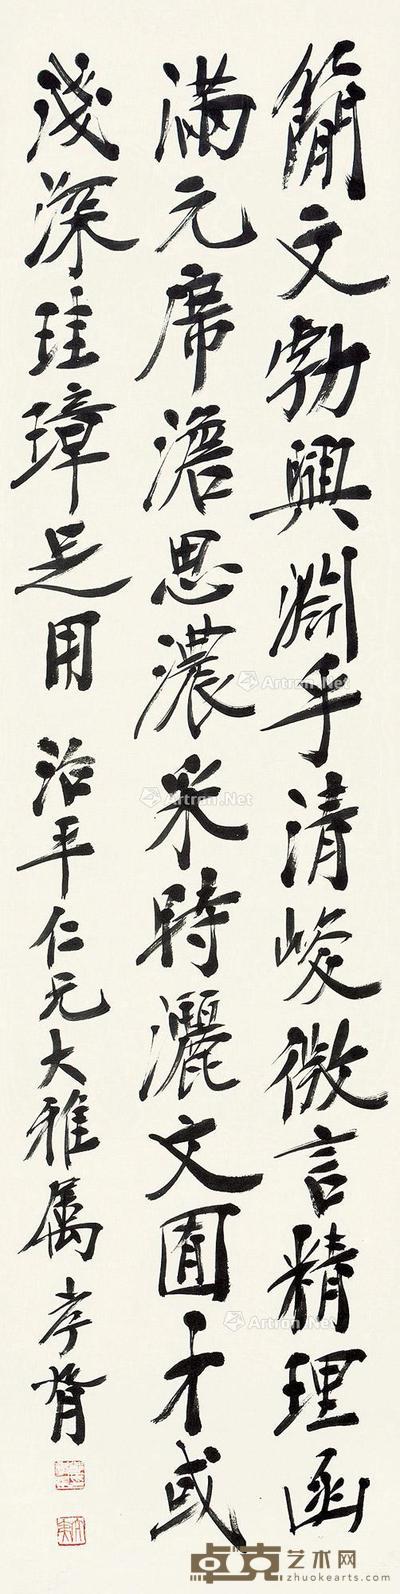 簡文勃興淵乎清峻微言精理函
滿元席澹思濃采時灑文囿才或
淺深珪璋足用 治平仁兄大雅屬 孝胥
Artron.Net
Artron.Net
Artron.Net
Artron.Net
卓克艺术网
zhuokearts.com